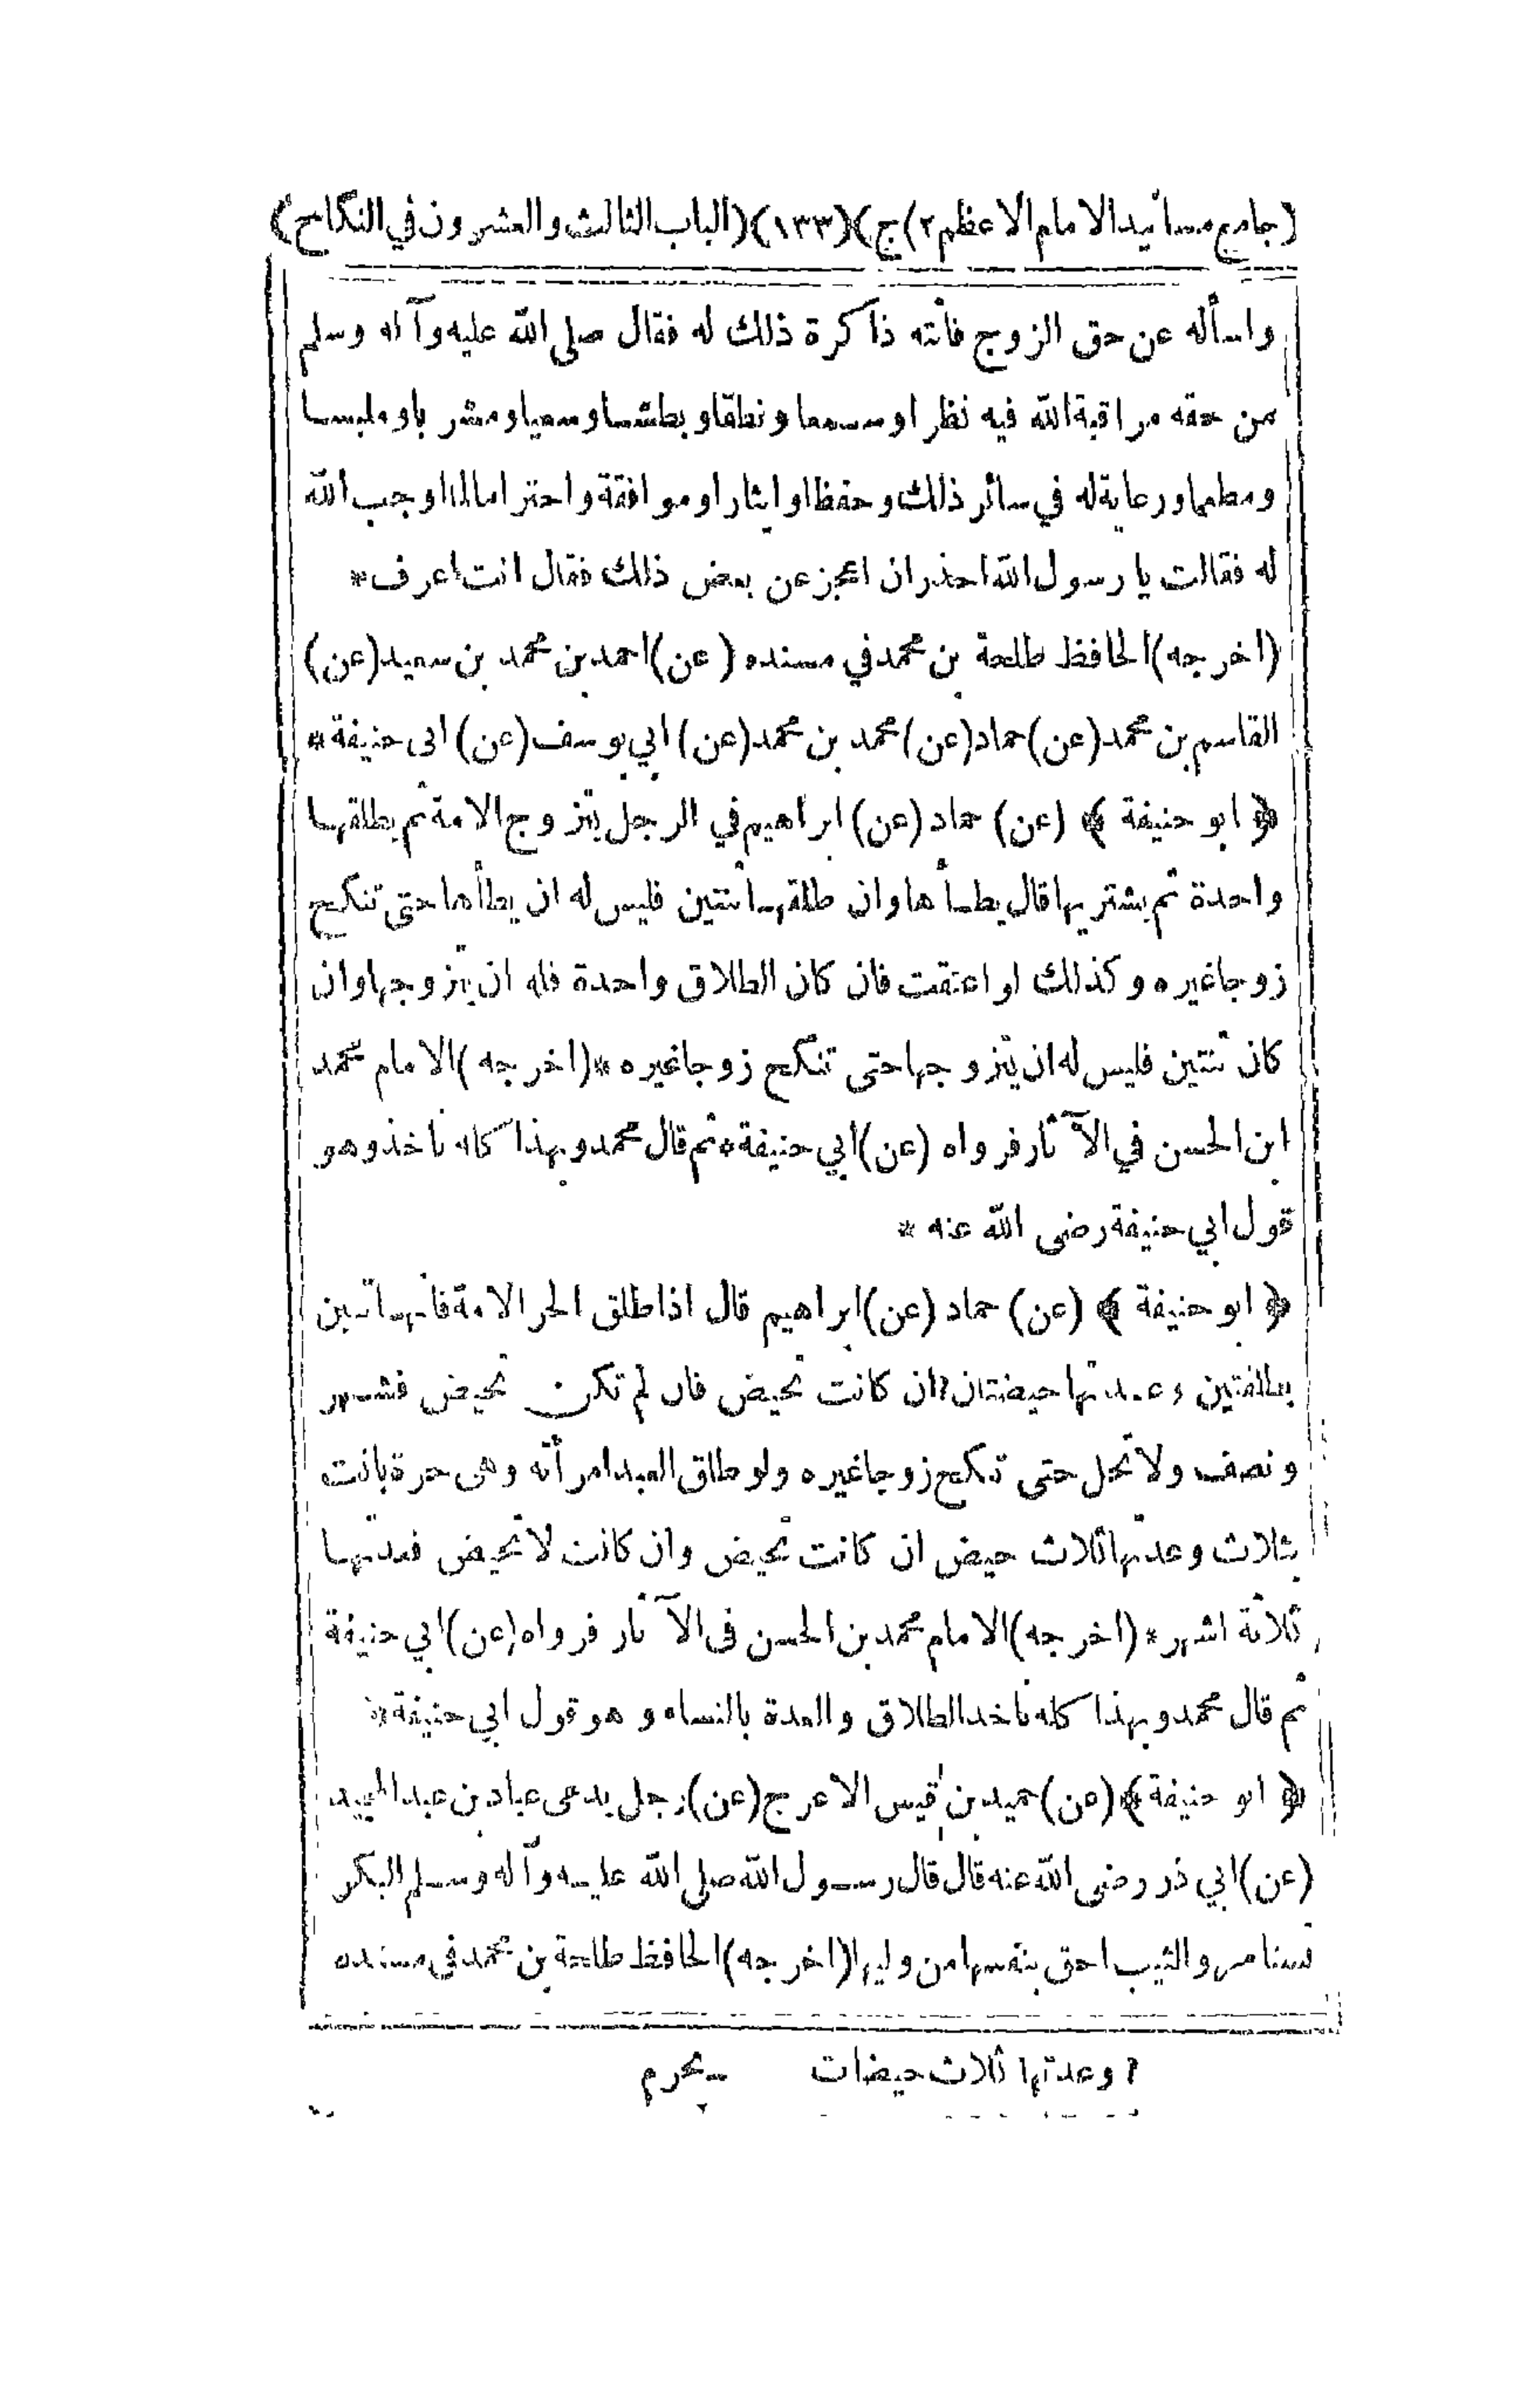 (جامع مسانيد الامام الاعظم ٢) ج) (١٣٣) (الباب الثالث والعشرون في النكاح)
واسأله عن حق الزوج فأتته ذاكرة ذلك له فقال صلى الله عليه وآله وسلم
من حقه مراقبة الله فيه نظراو سمعا و نطقا و بطشاوسعياو مشر باو ملبسا
ومطعماورعاية له في سائر ذلك و حفظاو ايثاراو موافقة واحتراما لما اوجب الله
له فقالت يا رسول الله احذر ان اعجز عن بعض ذلك فقال انت اعرف *
(اخرجه) الحافظ طلحة بن محمد في مسنده (عن) احمد بن محمد بن سعيد (عن)
القاسم بن محمد (عن) حماد (عن) محمد بن محمد (عن) ابي يوسف (عن) ابى حنيفة *
﴿ ابو حنيفة ﴾ (عن) حماد (عن) ابراهيم في الرجل يتزوج الامة ثم يطلقها
واحدة ثم يشتريها قال يطأها وان طلقها ثنتين فليس له ان يطأها حتى تنكح
زوجا غيره و كذلك لو اعتقت فان كان الطلاق واحدة فله ان يتزوجها وان
كان ثنتين فليس له ان يتزوجها حتى تنكح زوجا غيره * (اخرجه) الامام محمد
ابن الحسن في الآثار فرواه (عن) ابي حنيفة * ثم قال محمد وبهذا كله ناخذ وهو
قول ابي حنيفة رضى الله عنه *
﴿ ابو حنيفة ﴾ (عن) حماد (عن) ابراهيم قال اذا طلق الحر الامة فانها تبين
بطلقتين وعدتها حيضتان ٢ ان كانت تحيض فان لم تكن تحيض فشهر
ونصف ولا تحل حتى تنكح زوجا غيره ولو طلق العبد امرأته وهى حرة بانت
بثلاث وعدتها ثلاث حيض ان كانت تحيض وان كانت لا تحيض فعدتها
ثلاثة اشهر * (اخرجه) الامام محمد بن الحسن فى الآثار فرواه (عن) ابي حنيفة
ثم قال محمد وبهذا كله ناخذ الطلاق والعدة بالنساء و هو قول ابي حنيفة *
﴿ ابو حنيفة ﴾ (عن) حميد بن قيس الاعرج (عن) رجل يدعى عباد بن عبد المجيد
(عن) ابي ذر رضى الله عنه قال قال رسول الله صلى الله عليه وآله وسلم البكر
تستامر والثيب احق بنفسها من وليها (اخرجه) الحافظ طلحة بن محمد فى مسنده
٢ وعدتها ثلاث حيضات